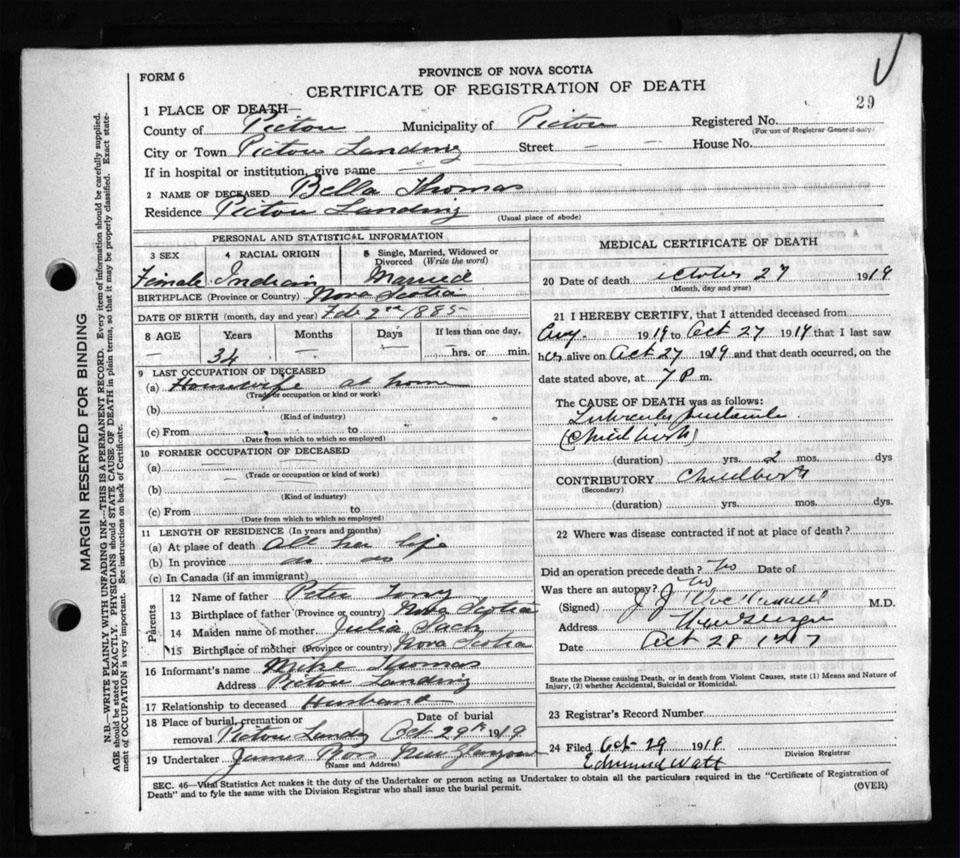 FORM 6
PROVINCE OF NOVA SCOTIA
CERTIFICATE OF REGISTRATION OF DEATH
29
1 PLACE OF DEATH—
County of Pictou Municipality of Pictou Registered No.
(For use of Registrar General only)
City or Town Pictou Landing Street — — House No.
If in hospital or institution, give name
2 NAME OF DECEASED Bella Thomas
Residence Pictou Landing
(Usual place of abode)
PERSONAL AND STATISTICAL INFORMATION
3 SEX 4 RACIAL ORIGIN 5 Single, Married, Widowed or Divorced (Write the word)
Female Indian Married
BIRTHPLACE (Province or Country) Nova Scotia
DATE OF BIRTH (month, day and year) Feb 2nd 1885
8 AGE Years Months Days If less than one day,
— 34 — — — hrs. or — min.
9 LAST OCCUPATION OF DECEASED
(a) Housewife at home
(Trade or occupation or kind of work)
(b)
(Kind of industry)
(c) From to
(Date from which to which so employed)
10 FORMER OCCUPATION OF DECEASED
(a) — —
(Trade or occupation or kind of work)
(b)
(Kind of industry)
(c) From to
(Date from which to which so employed)
11 LENGTH OF RESIDENCE (In years and months)
(a) At place of death All her life
(b) In province do do
(c) In Canada (if an immigrant)
Parents
12 Name of father Peter Tony
13 Birthplace of father (Province or country) Nova Scotia
14 Maiden name of mother Julia Sack
15 Birthplace of mother (Province or country) Nova Scotia
16 Informant's name Mike Thomas
Address Pictou Landing
17 Relationship to deceased Husband
18 Place of burial, cremation or removal Pictou Landg Date of burial Oct 29th 1919
19 Undertaker James Ross New Glasgow
(Name and Address)
MEDICAL CERTIFICATE OF DEATH
20 Date of death October 27 1919
(Month, day and year)
21 I HEREBY CERTIFY, that I attended deceased from
Aug. 1919 to Oct 27 1919 that I last saw
her alive on Oct 27 1919 and that death occurred, on the
date stated above, at 7 P m.
The CAUSE OF DEATH was as follows:
(Child birth)
(duration) yrs. 2 mos. dys
CONTRIBUTORY Childbirth
(Secondary)
(duration) yrs. mos. dys.
22 Where was disease contracted if not at place of death?
Did an operation precede death? No Date of
Was there an autopsy? No
(Signed) J J M.D.
Address New Glasgow
Date Oct 28 1917
State the Disease causing Death, or in death from Violent Causes, state (1) Means and Nature of
Injury, (2) whether Accidental, Suicidal or Homicidal.
23 Registrar's Record Number
24 Filed Oct- 29 1919
Edmund Watt
Division Registrar
SEC. 46—Vital Statistics Act makes it the duty of the Undertaker or person acting as Undertaker to obtain all the particulars required in the "Certificate of Registration of
Death" and to fyle the same with the Division Registrar who shall issue the burial permit.
(OVER)
MARGIN RESERVED FOR BINDING
N.B.—WRITE PLAINLY WITH UNFADING INK—THIS IS A PERMANENT RECORD. Every item of information should be carefully supplied.
AGE should be stated EXACTLY. PHYSICIANS should STATE CAUSE OF DEATH in plain terms, so that it may be properly classified. Exact state-
ment of OCCUPATION is very important. See instructions on back of Certificate.